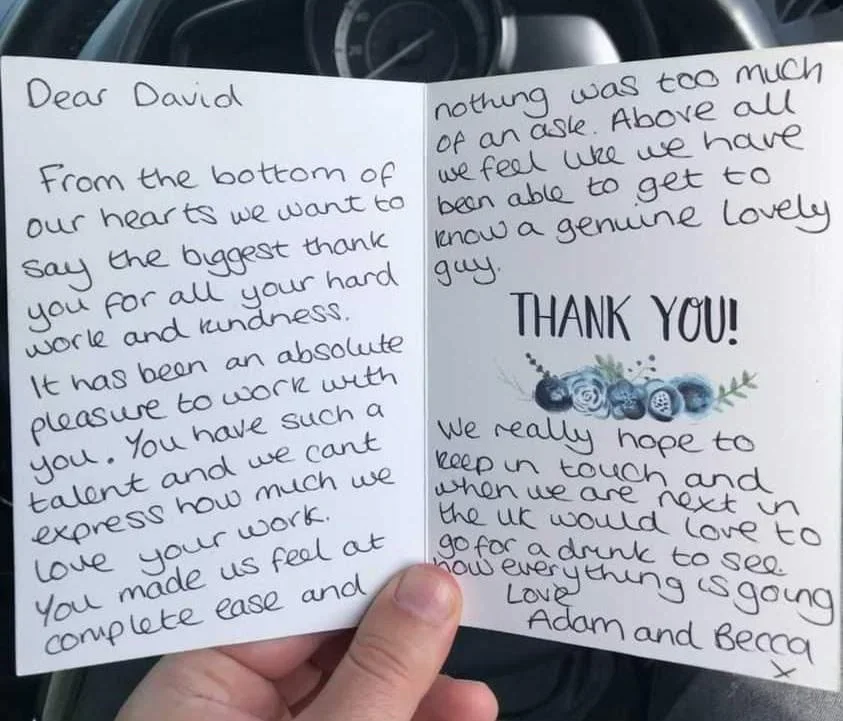 Dear David
From the bottom of
our hearts we want to
say the biggest thank
you for all your hard
work and kindness.
It has been an absolute
pleasure to work with
you. You have such a
talent and we cant
express how much we
love your work.
You made us feel at
complete ease and
nothing was too much
of an ask. Above all
we feel like we have
been able to get to
know a genuine lovely
guy.
THANK YOU!
We really hope to
keep in touch and
when we are next in
the UK would love to
go for a drink to see
how everything is going
Love
Adam and Becca
x